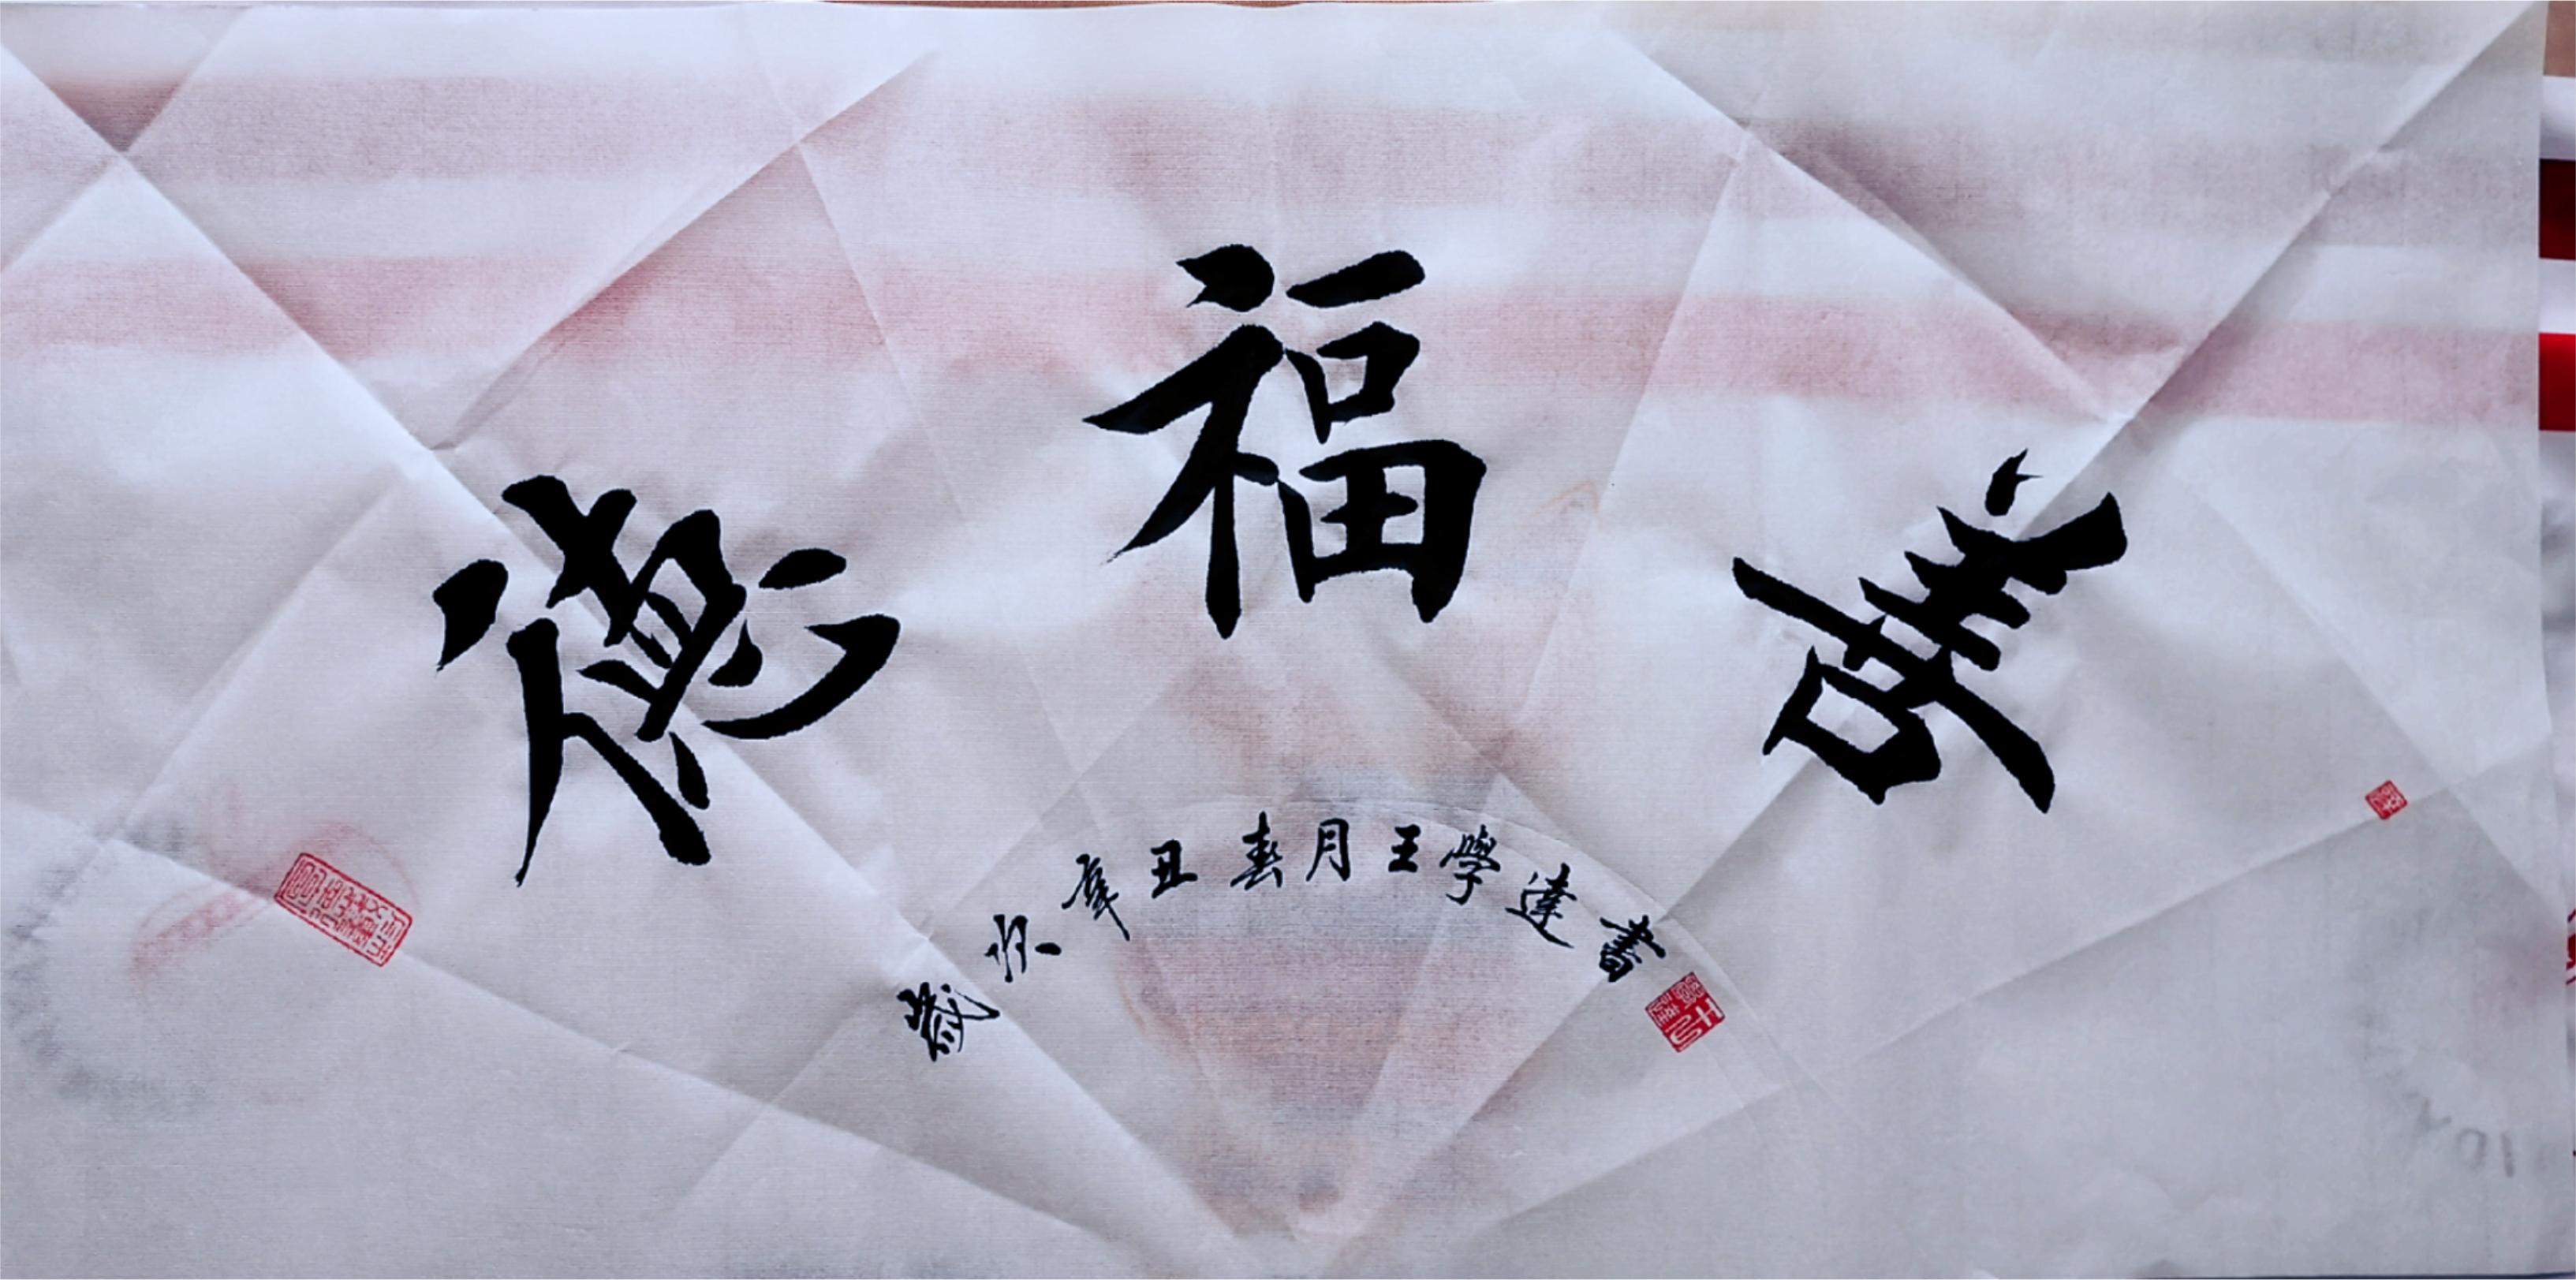 德福善
歲次辛丑春月王學達書